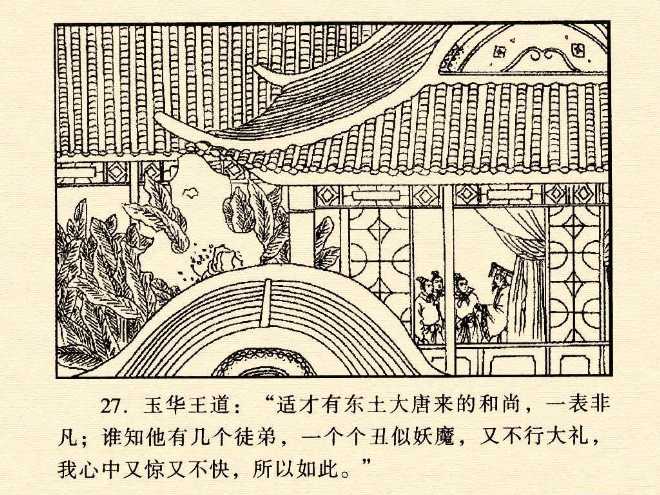 27. 玉华王道：“适才有东土大唐来的和尚，一表非
凡；谁知他有几个徒弟，一个个丑似妖魔，又不行大礼，
我心中又惊又不快，所以如此。”